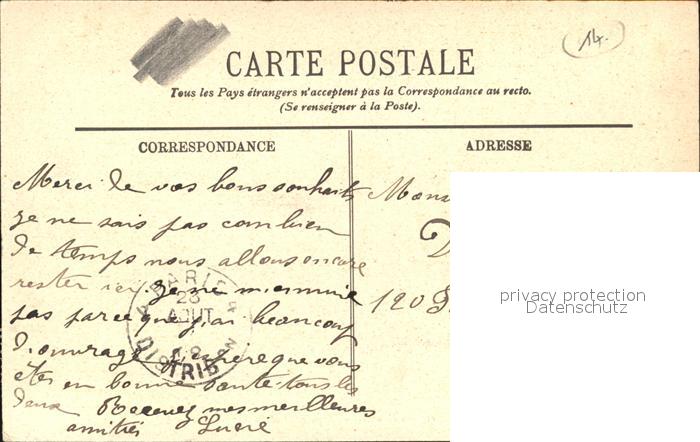 (14.)
CARTE POSTALE
Tous les Pays étrangers n'acceptent pas la Correspondance au recto.
(Se renseigner à la Poste).
CORRESPONDANCE
Merci de vos bons souhaits
je ne sais pas combien
de temps nous allons encore
rester ici, je ne m'ennuie
pas parce que j'ai beaucoup
d'ouvrage j'espère que vous
êtes en bonne santé tous les
deux Recevez mes meilleures
amitiés
PARIS
23
AOUT
DISTRIB
ADRESSE
120
privacy protection
Datenschutz